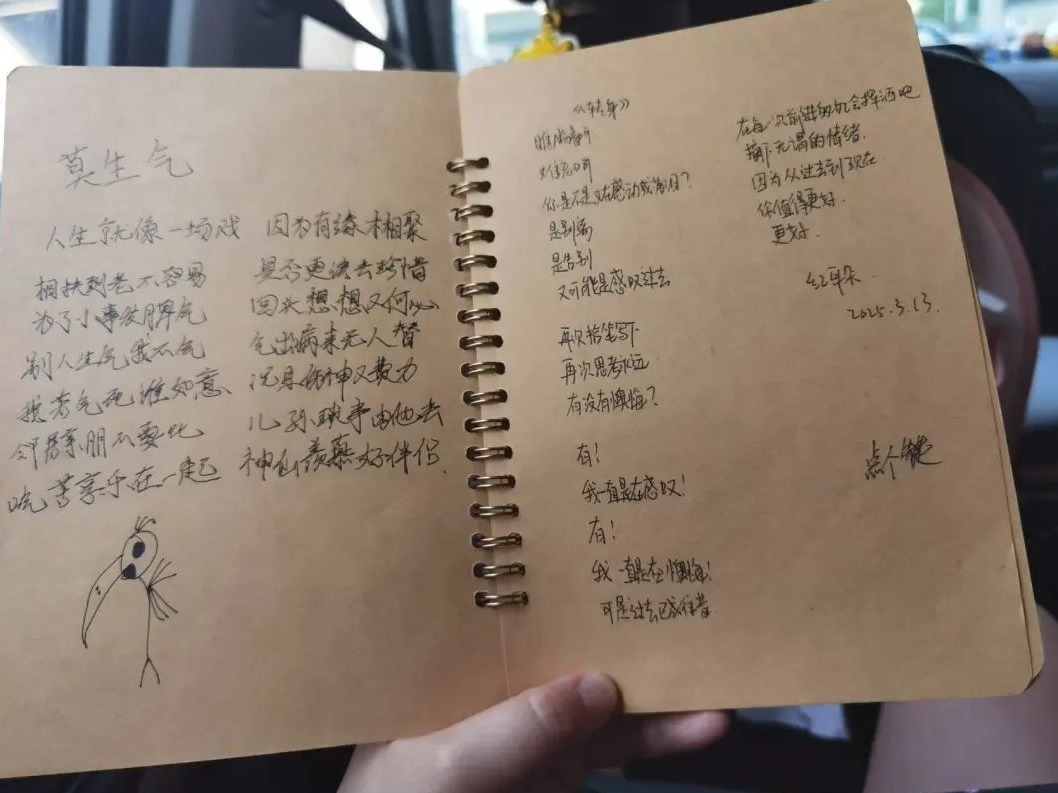 莫生气
人生就像一场戏 因为有缘才相聚
相扶到老不容易 是否更该去珍惜
为了小事发脾气 回头想想又何必
别人生气我不气 气出病来无人替
我若气死谁如意 况且伤神又费力
邻居亲朋不要比 儿孙琐事由他去
吃苦享乐在一起 神仙羡慕好伴侣.
《转身》
你是不是又在感动或落泪？
是别离
是告别
又可能是感叹过去
再次拾笔写下
再次思考永远
有没有懊悔？
有！
我一直是在感叹！
有！
我一直是在懊悔！
可是过去已成往昔
在每一次前进的机会挥洒吧
摘下无谓的情绪.
因为从过去到现在.
你值得更好.
更好.
红耳朵.
2025.3.13.
点个